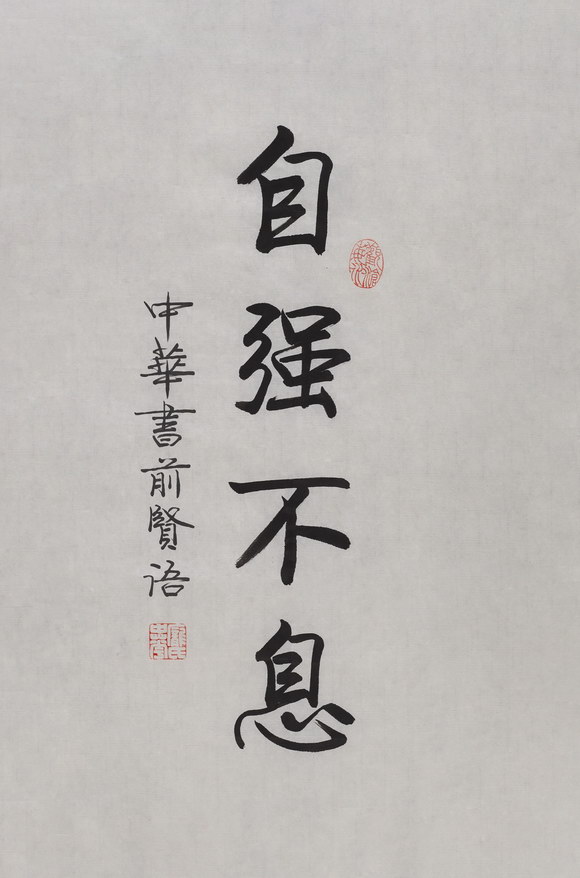 自强不息
中華書前賢語